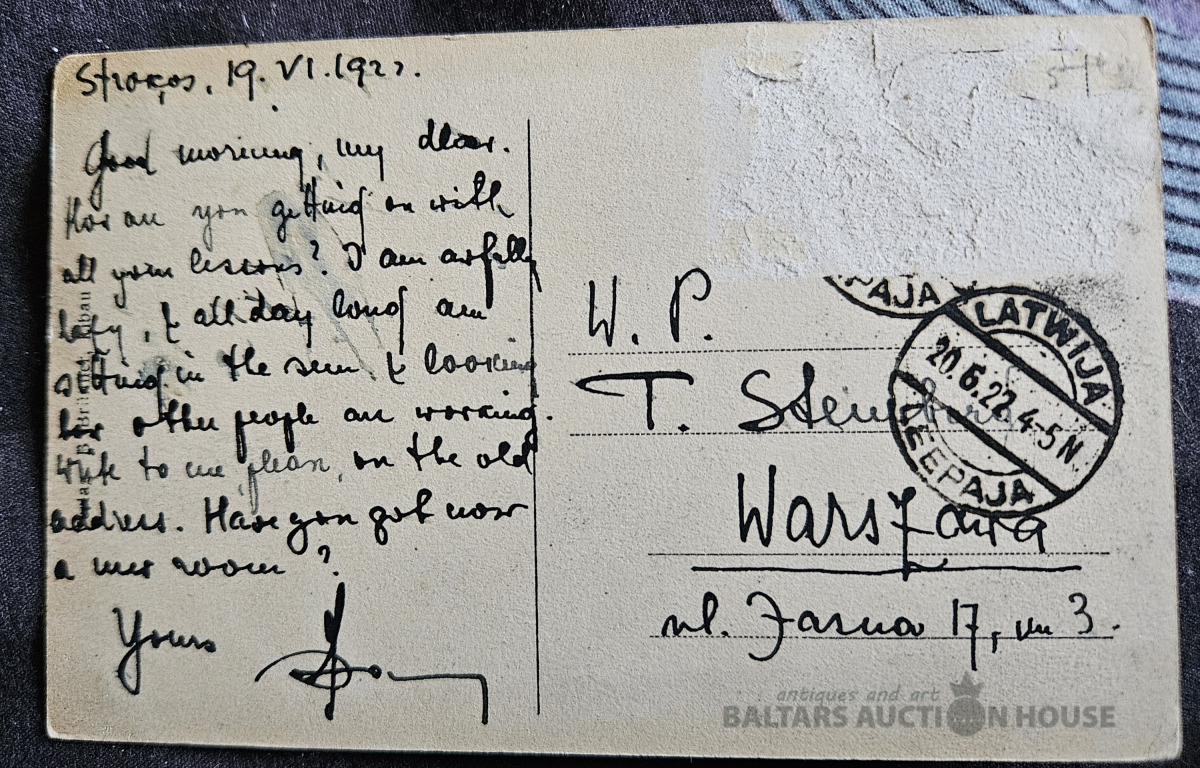 19. VI. 1922.
Good morning, my dear.
How are you getting on with
all your lessons? I am awfully
lazy, & all day long am
sitting in the sun & looking
how other people are working.
Write to me please, on the old
address. Have you got now
a new room?
Yours
W. P.
T.
Warszawa
ul. 17, m 3.
PAJA
LATWIJA
20.6.22.4-5N
LEEPAJA
antiques and art
BALTARS AUCTION HOUSE